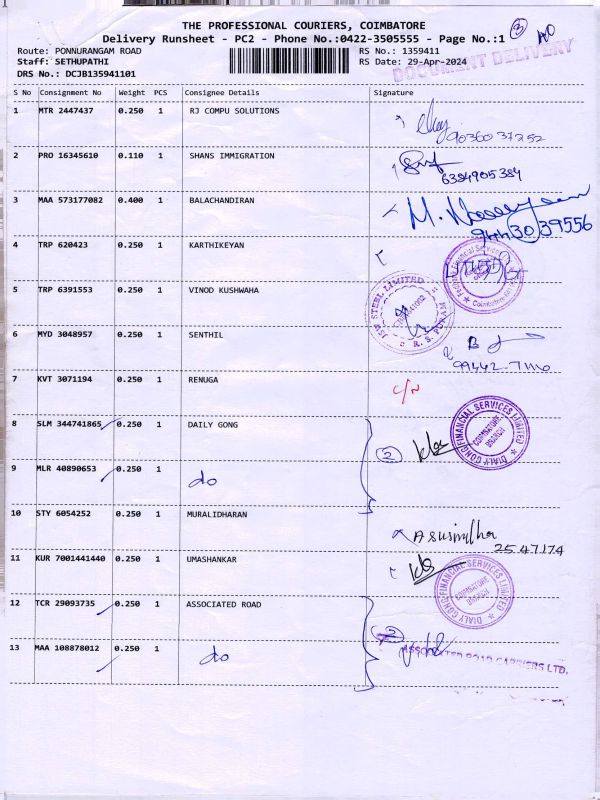 THE PROFESSIONAL COURIERS, COIMBATORE
Delivery Runsheet - PC2 - Phone No.:0422-3505555 - Page No.:1
3
Route: PONNURANGAM ROAD RS No.: 1359411
Staff: SETHUPATHI RS Date: 29-Apr-2024
DOCUMENT DELIVERY
DRS No.: DCJB135941101
S No Consignment No Weight PCS Consignee Details Signature
1 MTR 2447437 0.250 1 RJ COMPU SOLUTIONS
9036037252
2 PRO 16345610 0.110 1 SHANS IMMIGRATION
6384905384
3 MAA 573177082 0.400 1 BALACHANDIRAN
4 TRP 620423 0.250 1 KARTHIKEYAN
5 TRP 6391553 0.250 1 VINOD KUSHWAHA
JSW STEEL LIMITED
R. S. PURAM
6 MYD 3048957 0.250 1 SENTHIL
7 KVT 3071194 0.250 1 RENUGA
C/N
8 SLM 344741865 0.250 1 DAILY GONG
2
DIALY GONG FINANCIAL SERVICES LIMITED
COIMBATORE
BRANCH
9 MLR 40890653 0.250 1 do
10 STY 6054252 0.250 1 MURALIDHARAN
2547174
11 KUR 7001441440 0.250 1 UMASHANKAR
DIALY GONG FINANCIAL SERVICES LIMITED
COIMBATORE
BRANCH
12 TCR 29093735 0.250 1 ASSOCIATED ROAD
2
13 MAA 108878012 0.250 1 do
ASSOCIATED ROAD CARRIERS LTD.